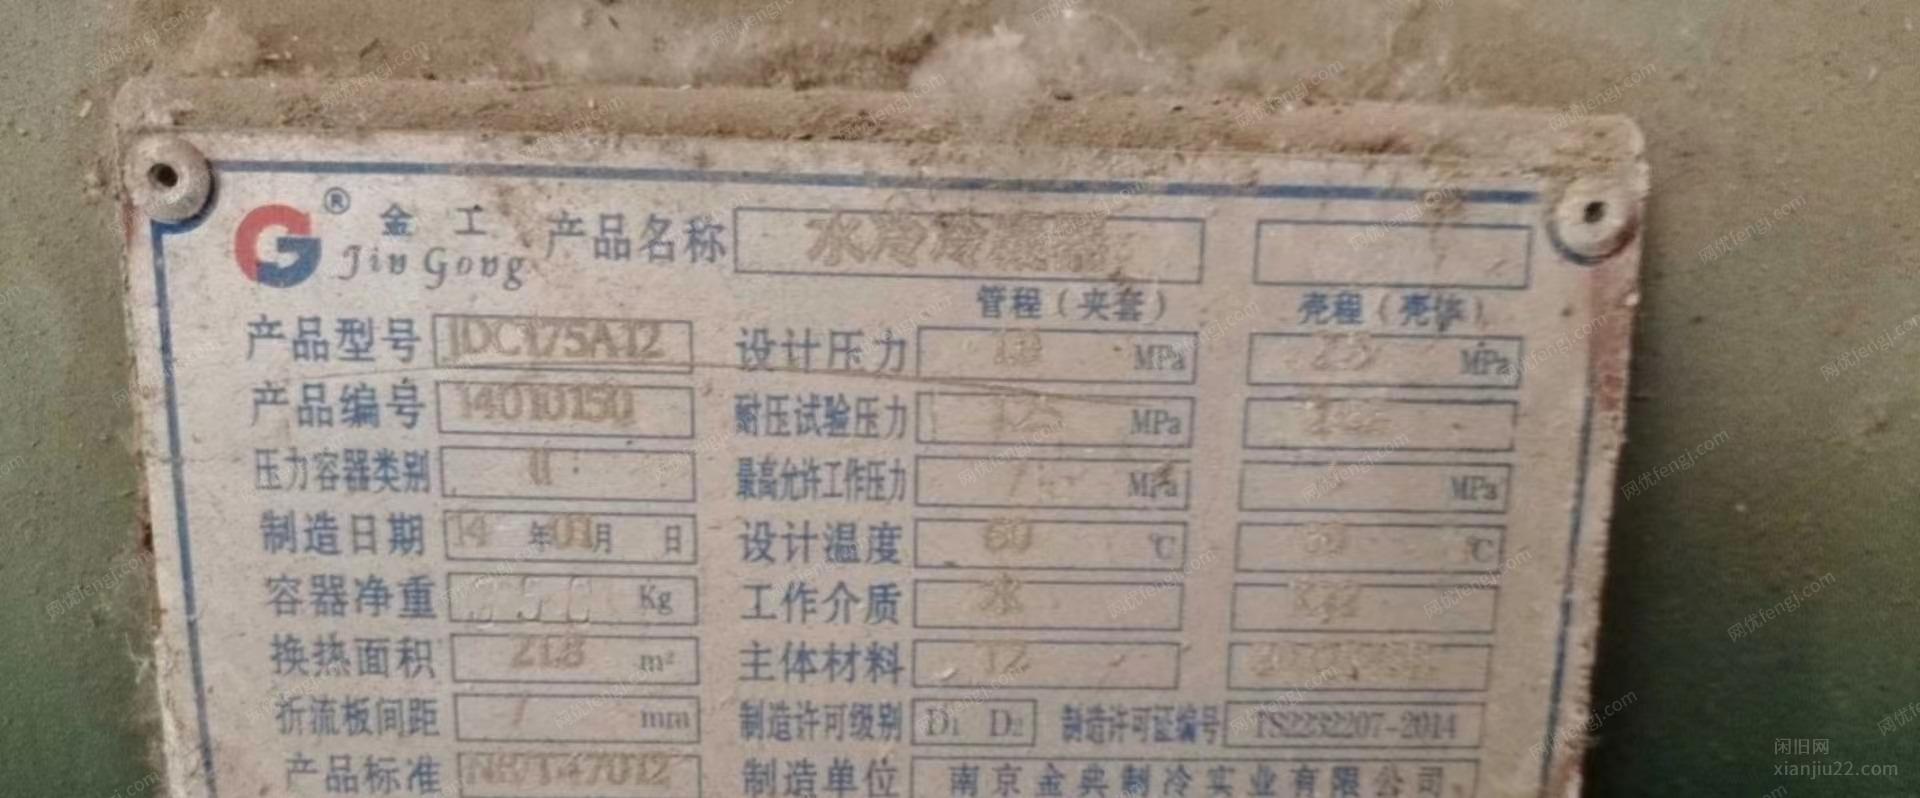 G ® 金工 产品名称 水冷冷凝器
Jin Gong
管程（夹套） 壳程（壳体）
产品型号 JDC175A12 设计压力 MPa MPa
产品编号 14010150 耐压试验压力 MPa
压力容器类别 II 最高允许工作压力 / MPa / MPa
制造日期 14年01月 日 设计温度 60 ℃ ℃
容器净重 Kg 工作介质 水
换热面积 21.8 m² 主体材料 T2
折流板间距 / mm 制造许可级别 D1 D2 制造许可证编号 TS2232207-2014
产品标准 NB/T47012 制造单位 南京金典制冷实业有限公司
闲旧网
xianjiu22.com
网优fengj.com